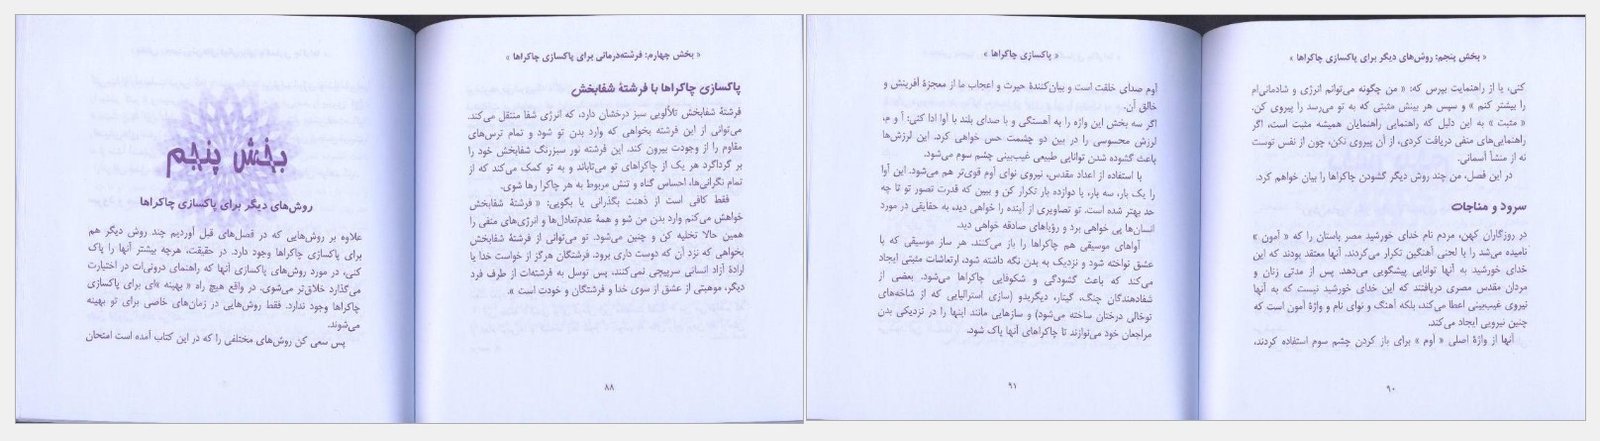 « بخش چهارم: فرشته‌درمانی برای پاکسازی چاکراها »
پاکسازی چاکراها با فرشتهٔ شفابخش
فرشتهٔ شفابخش تلألویی سبز درخشان دارد، که انرژی شفا منتقل می‌کند.
می‌توانی از این فرشته بخواهی که وارد بدن تو شود و تمام ترس‌های
مقاوم را از وجودت بیرون کند، این فرشته نور سبزرنگ شفابخش خود را
بر گرداگرد هر یک از چاکراهای تو می‌تاباند و به تو کمک می‌کند که از
تمام نگرانی‌ها، احساس گناه و تنش مربوط به هر چاکرا رها شوی.
فقط کافی است از ذهنت بگذرانی یا بگویی: « فرشتهٔ شفابخش
خواهش می‌کنم وارد بدن من شو و همهٔ عدم‌تعادل‌ها و انرژی‌های منفی را
همین حالا تخلیه کن و چنین می‌شود. تو می‌توانی از فرشتهٔ شفابخش
بخواهی که نزد آن که دوست داری برود. فرشتگان هرگز از خواست خدا یا
ارادهٔ آزاد انسانی سرپیچی نمی‌کنند. پس توسل به فرشته‌ات از طرف فرد
دیگر، موهبتی از عشق از سوی خدا و فرشتگان و خودت است ».
۸۸
بخش پنجم
روش‌های دیگر برای پاکسازی چاکراها
علاوه بر روش‌هایی که در فصل‌های قبل آوردیم چند روش دیگر هم
برای پاکسازی چاکراها وجود دارد. در حقیقت، هرچه بیشتر آنها را پاک
کنی، در مورد روش‌های پاکسازی آنها که راهنمای درونی‌ات در اختیارت
می‌گذارد خلاق‌تر می‌شوی. در واقع هیچ راه « بهینه »ای برای پاکسازی
چاکراها وجود ندارد. فقط روش‌هایی در زمان‌های خاصی برای تو بهینه
می‌شوند.
پس سعی کن روش‌های مختلفی را که در این کتاب آمده است امتحان
« بخش پنجم: روش‌های دیگر برای پاکسازی چاکراها »
کنی، یا از راهنمایت بپرس که: « من چگونه می‌توانم انرژی و شادمانی‌ام
را بیشتر کنم » و سپس هر بینش مثبتی که به تو می‌رسد را پیروی کن.
« مثبت » به این دلیل که راهنمایی راهنمایان همیشه مثبت است، اگر
راهنمایی‌های منفی دریافت کردی، از آن پیروی نکن، چون از نفس توست
نه از منشأ آسمانی.
در این فصل، من چند روش دیگر گشودن چاکراها را بیان خواهم کرد.
سرود و مناجات
در روزگاران کهن، مردم نام خدای خورشید مصر باستان را که « آمون »
نامیده می‌شد را با لحنی آهنگین تکرار می‌کردند. آنها معتقد بودند که این
خدای خورشید به آنها توانایی پیشگویی می‌دهد. پس از مدتی زنان و
مردان مقدس مصری دریافتند که این خدای خورشید نیست که به آنها
نیروی غیب‌بینی اعطا می‌کند، بلکه آهنگ و نوای نام و واژهٔ آمون است که
چنین نیرویی ایجاد می‌کند.
آنها از واژهٔ اصلی « اوم » برای باز کردن چشم سوم استفاده کردند،
۹۰
« پاکسازی چاکراها »
اوم صدای خلقت است و بیان‌کنندهٔ حیرت و اعجاب ما از معجزهٔ آفرینش و
خالق آن.
اگر سه بخش این واژه را به آهستگی و با صدای بلند با آوا ادا کنی: آ و م،
لرزش محسوسی را در بین دو چشمت حس خواهی کرد. این لرزش‌ها
باعث گشوده شدن توانایی طبیعی غیب‌بینی چشم سوم می‌شود.
با استفاده از اعداد مقدس، نیروی نوای آوم قوی‌تر هم می‌شود. این آوا
را یک بار، سه بار، یا دوازده بار تکرار کن و ببین که قدرت تصور تو تا چه
حد بهتر شده است. تو تصاویری از آینده را خواهی دید، به حقایقی در مورد
انسان‌ها پی خواهی برد و رؤیاهای صادقه خواهی دید.
آواهای موسیقی هم چاکراها را باز می‌کنند. هر ساز موسیقی که با
عشق نواخته شود و نزدیک به بدن نگه داشته شود، ارتعاشات مثبتی ایجاد
می‌کند که باعث گشودگی و شکوفایی چاکراها می‌شود. بعضی از
شفادهندگان چنگ، گیتار، دیگریدو (سازی استرالیایی که از شاخه‌های
توخالی درختان ساخته می‌شود) و سازهایی مانند اینها را در نزدیکی بدن
مراجعان خود می‌نوازند تا چاکراهای آنها پاک شود.
۹۱